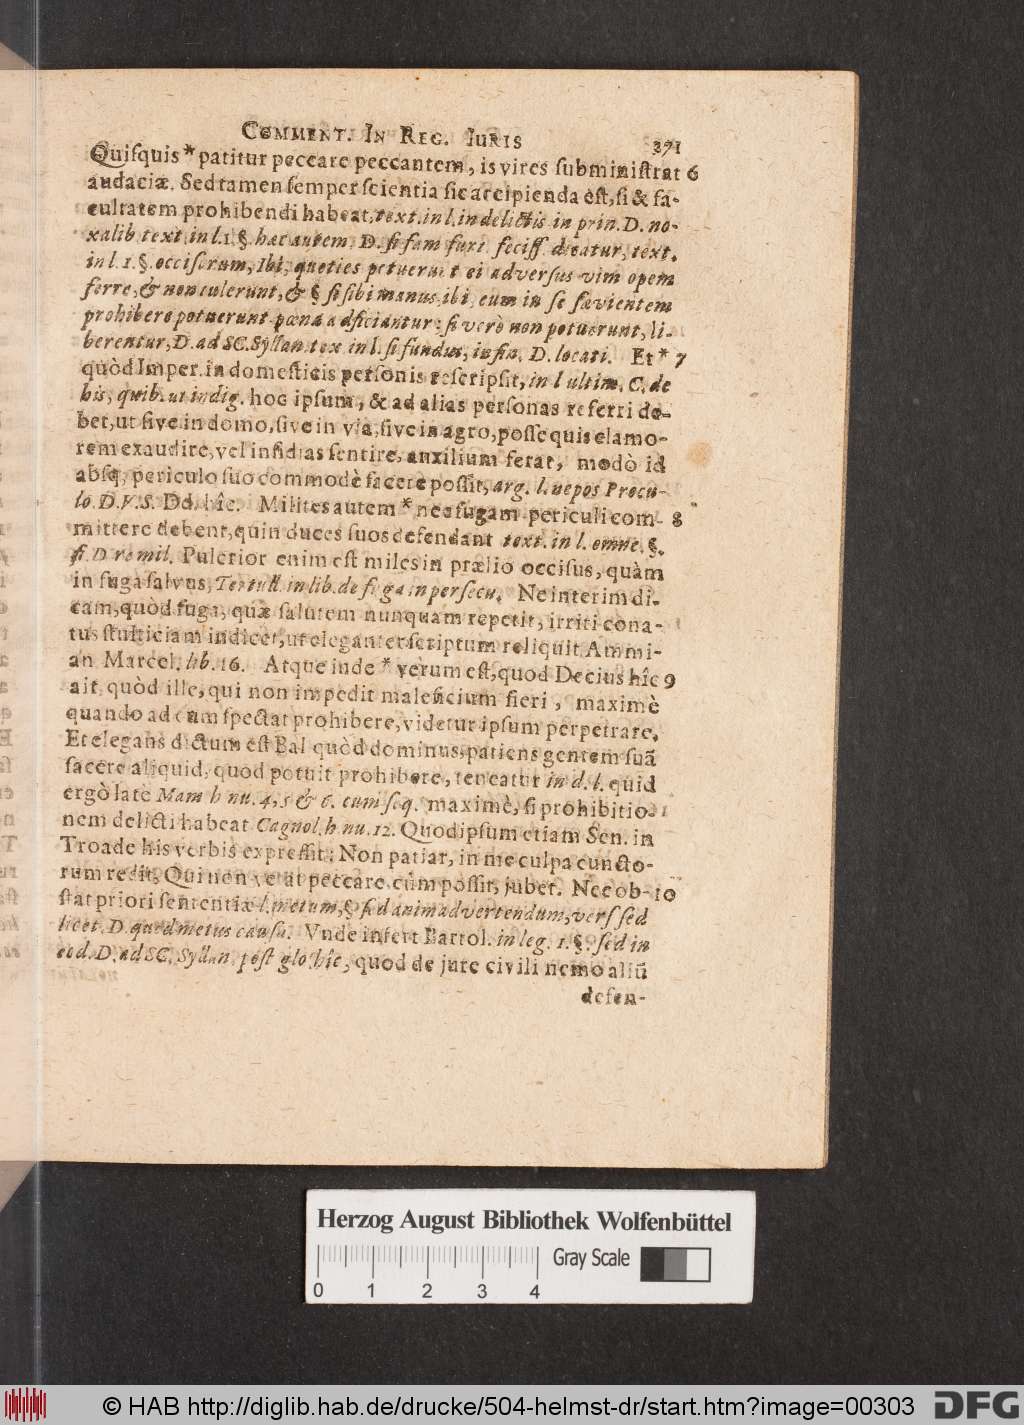 COMMENT. IN REG. IURIS 371
Quiſquis * patitur peccare peccantem, is vires ſubminiſtrat 6
audaciæ. Sed tamen ſemper ſcientia ſic accipienda eſt, ſi & fa-
cultatem prohibendi habeat, text. in l. in delictis in prin. D. no-
xalib. text. in l. 1. §. hac autem, D. ſi fam furt. feciſſ. dicatur, text.
in l. 1. §. occiſorum, Ibi, quoties potuerunt ei adverſus vim opem
ferre, & non tulerunt, & § ſi ſibi manus, ibi, eum in ſe ſævientem
prohibere potuerunt pœna adficiantur: ſi verò non potuerunt, li-
berentur, D. ad SC. Syllan. tex in l. ſi fundus, in fin. D. locati. Et * 7
quòd Imper. in domeſticis perſonis reſcripſit, in l ultim. C. de
his, quib. ut indig. hoc ipſum, & ad alias perſonas referri de-
bet, ut ſive in domo, ſive in via, ſive in agro, poſſe quis clamo-
rem exaudire, vel inſidias ſentire, auxilium ferat, modò id
abſq; periculo ſuo commodè facere poſſit, arg. l. nepos Procu-
lo. D. V. S. Dd. hîc. Milites autem * nec fugam periculi com- 8
mittere debent, quin duces ſuos defendant text. in l. omne. §.
ſi. D re mil. Pulcrior enim eſt miles in prælio occiſus, quàm
in fuga ſalvus, Tertull. in lib. de fuga in perſecu. Ne interim di-
cam, quòd fuga, quæ ſalutem nunquam repetit, irriti cona-
tus ſtultitiam indicet, ut eleganter ſcriptum reliquit Ammi-
an Marcel. lib. 16. Atque inde * verum eſt, quod Decius hîc 9
ait, quòd ille, qui non impedit maleficium fieri, maximè
quando ad eum ſpectat prohibere, videtur ipſum perpetrare.
Et elegans dictum eſt Bal quòd dominus, patiens gentem ſuã
facere aliquid, quod potuit prohibere, teneatur in d. l. quid
ergò latè Mam h nu. 4, 5 & 6. cum ſeq. maximè, ſi prohibitio-
nem delicti habeat Cagnol. h nu. 12. Quod ipſum etiam Sen. in
Troade his verbis expreſſit: Non patiar, in me culpa cuncto-
rum redit, Qui non vetat peccare cùm poſſit, jubet. Nec ob- 10
ſtat priori ſententiæ l. metum, §. ſed animadvertendum, verſ ſed
licet. D. quod metus cauſa. Vnde infert Bartol. in leg. 1. §. ſed in
eod. D. ad SC. Syllan. poſt glo. hîc, quod de jure civili nemo aliũ
defen-
Herzog August Bibliothek Wolfenbüttel
Gray Scale
0 1 2 3 4
© HAB http://diglib.hab.de/drucke/504-helmst-dr/start.htm?image=00303 DFG